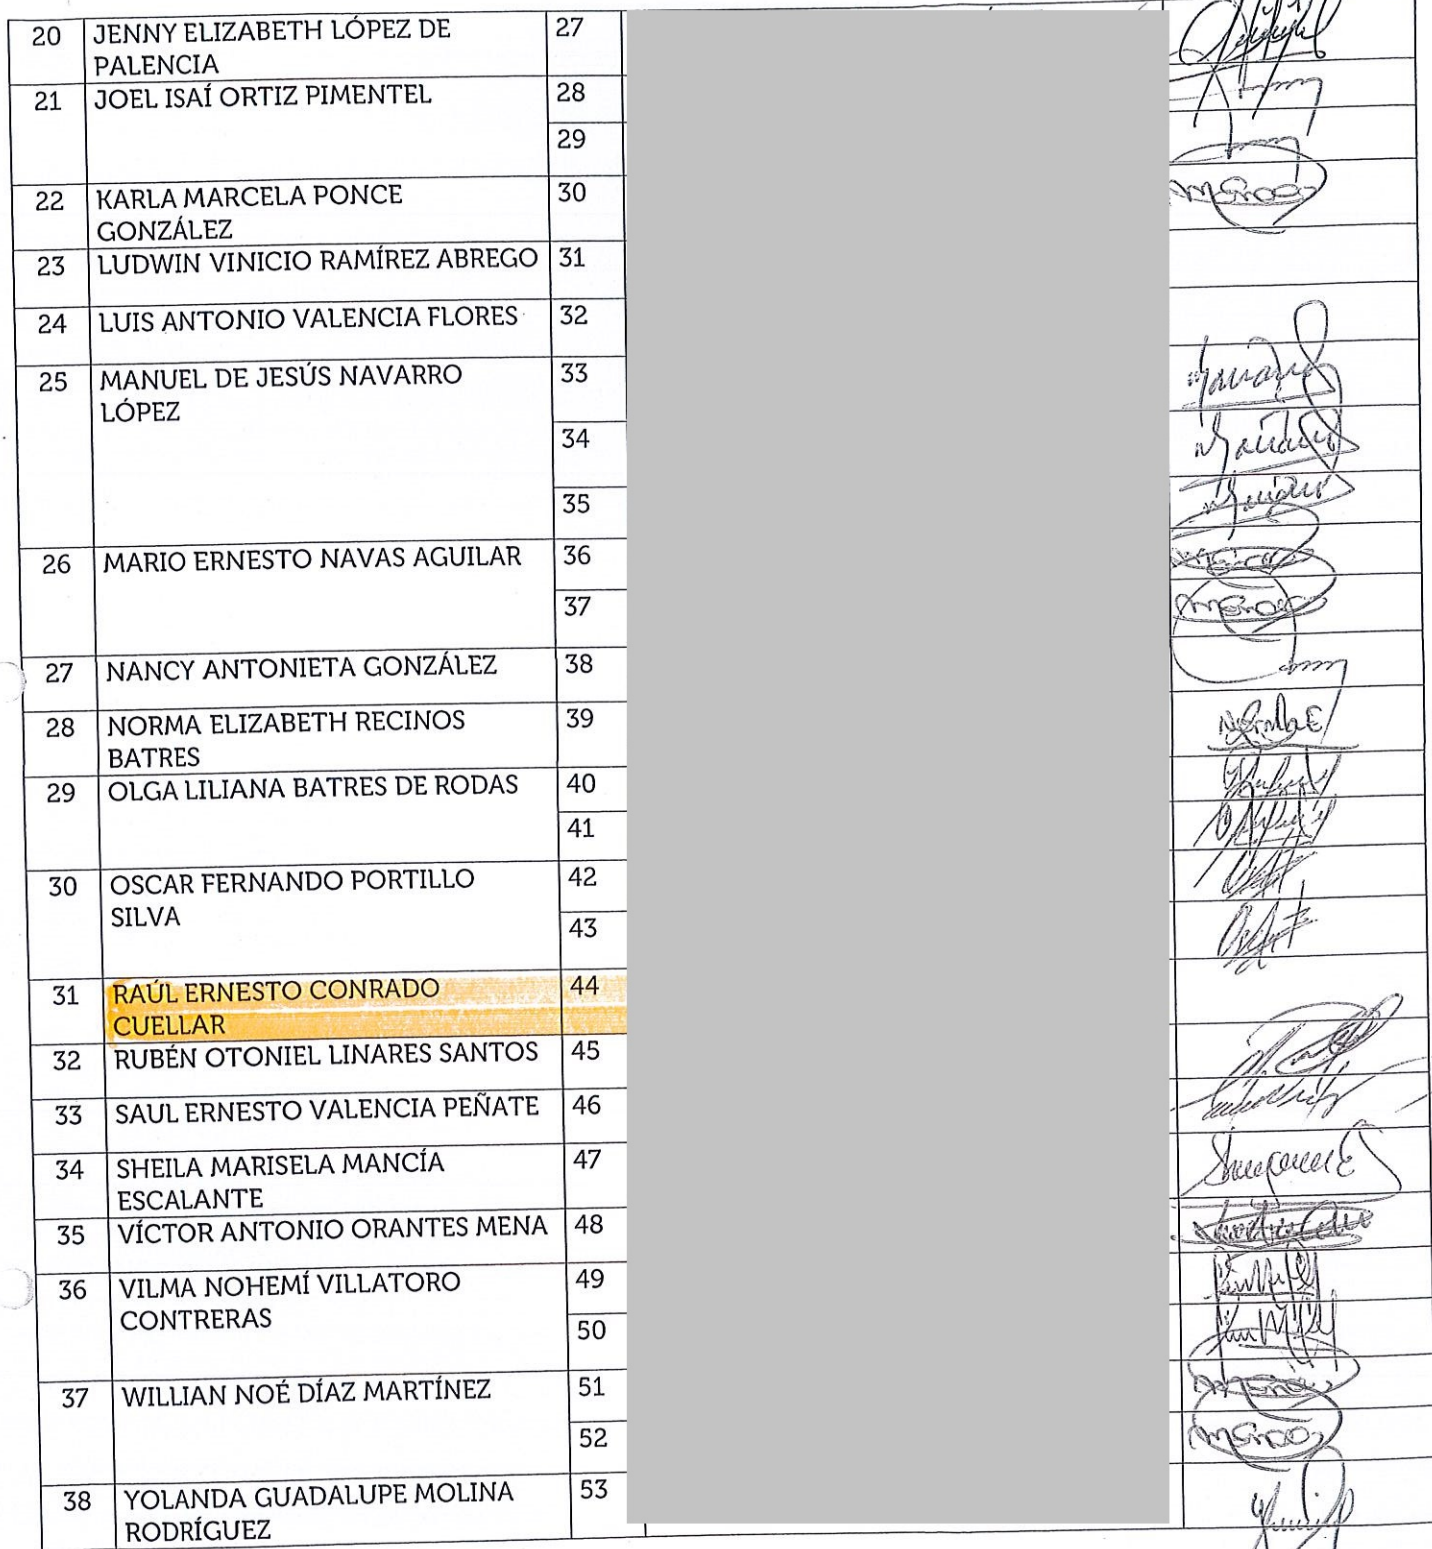 20 JENNY ELIZABETH LÓPEZ DE 27
PALENCIA
21 JOEL ISAÍ ORTIZ PIMENTEL 28
29
22 KARLA MARCELA PONCE 30
GONZÁLEZ
23 LUDWIN VINICIO RAMÍREZ ABREGO 31
24 LUIS ANTONIO VALENCIA FLORES 32
25 MANUEL DE JESÚS NAVARRO 33
LÓPEZ
34
35
26 MARIO ERNESTO NAVAS AGUILAR 36
37
27 NANCY ANTONIETA GONZÁLEZ 38
28 NORMA ELIZABETH RECINOS 39
BATRES
29 OLGA LILIANA BATRES DE RODAS 40
41
30 OSCAR FERNANDO PORTILLO 42
SILVA
43
31 RAÚL ERNESTO CONRADO 44
CUELLAR
32 RUBÉN OTONIEL LINARES SANTOS 45
33 SAUL ERNESTO VALENCIA PEÑATE 46
34 SHEILA MARISELA MANCÍA 47
ESCALANTE
35 VÍCTOR ANTONIO ORANTES MENA 48
36 VILMA NOHEMÍ VILLATORO 49
CONTRERAS
50
37 WILLIAN NOÉ DÍAZ MARTÍNEZ 51
52
38 YOLANDA GUADALUPE MOLINA 53
RODRÍGUEZ